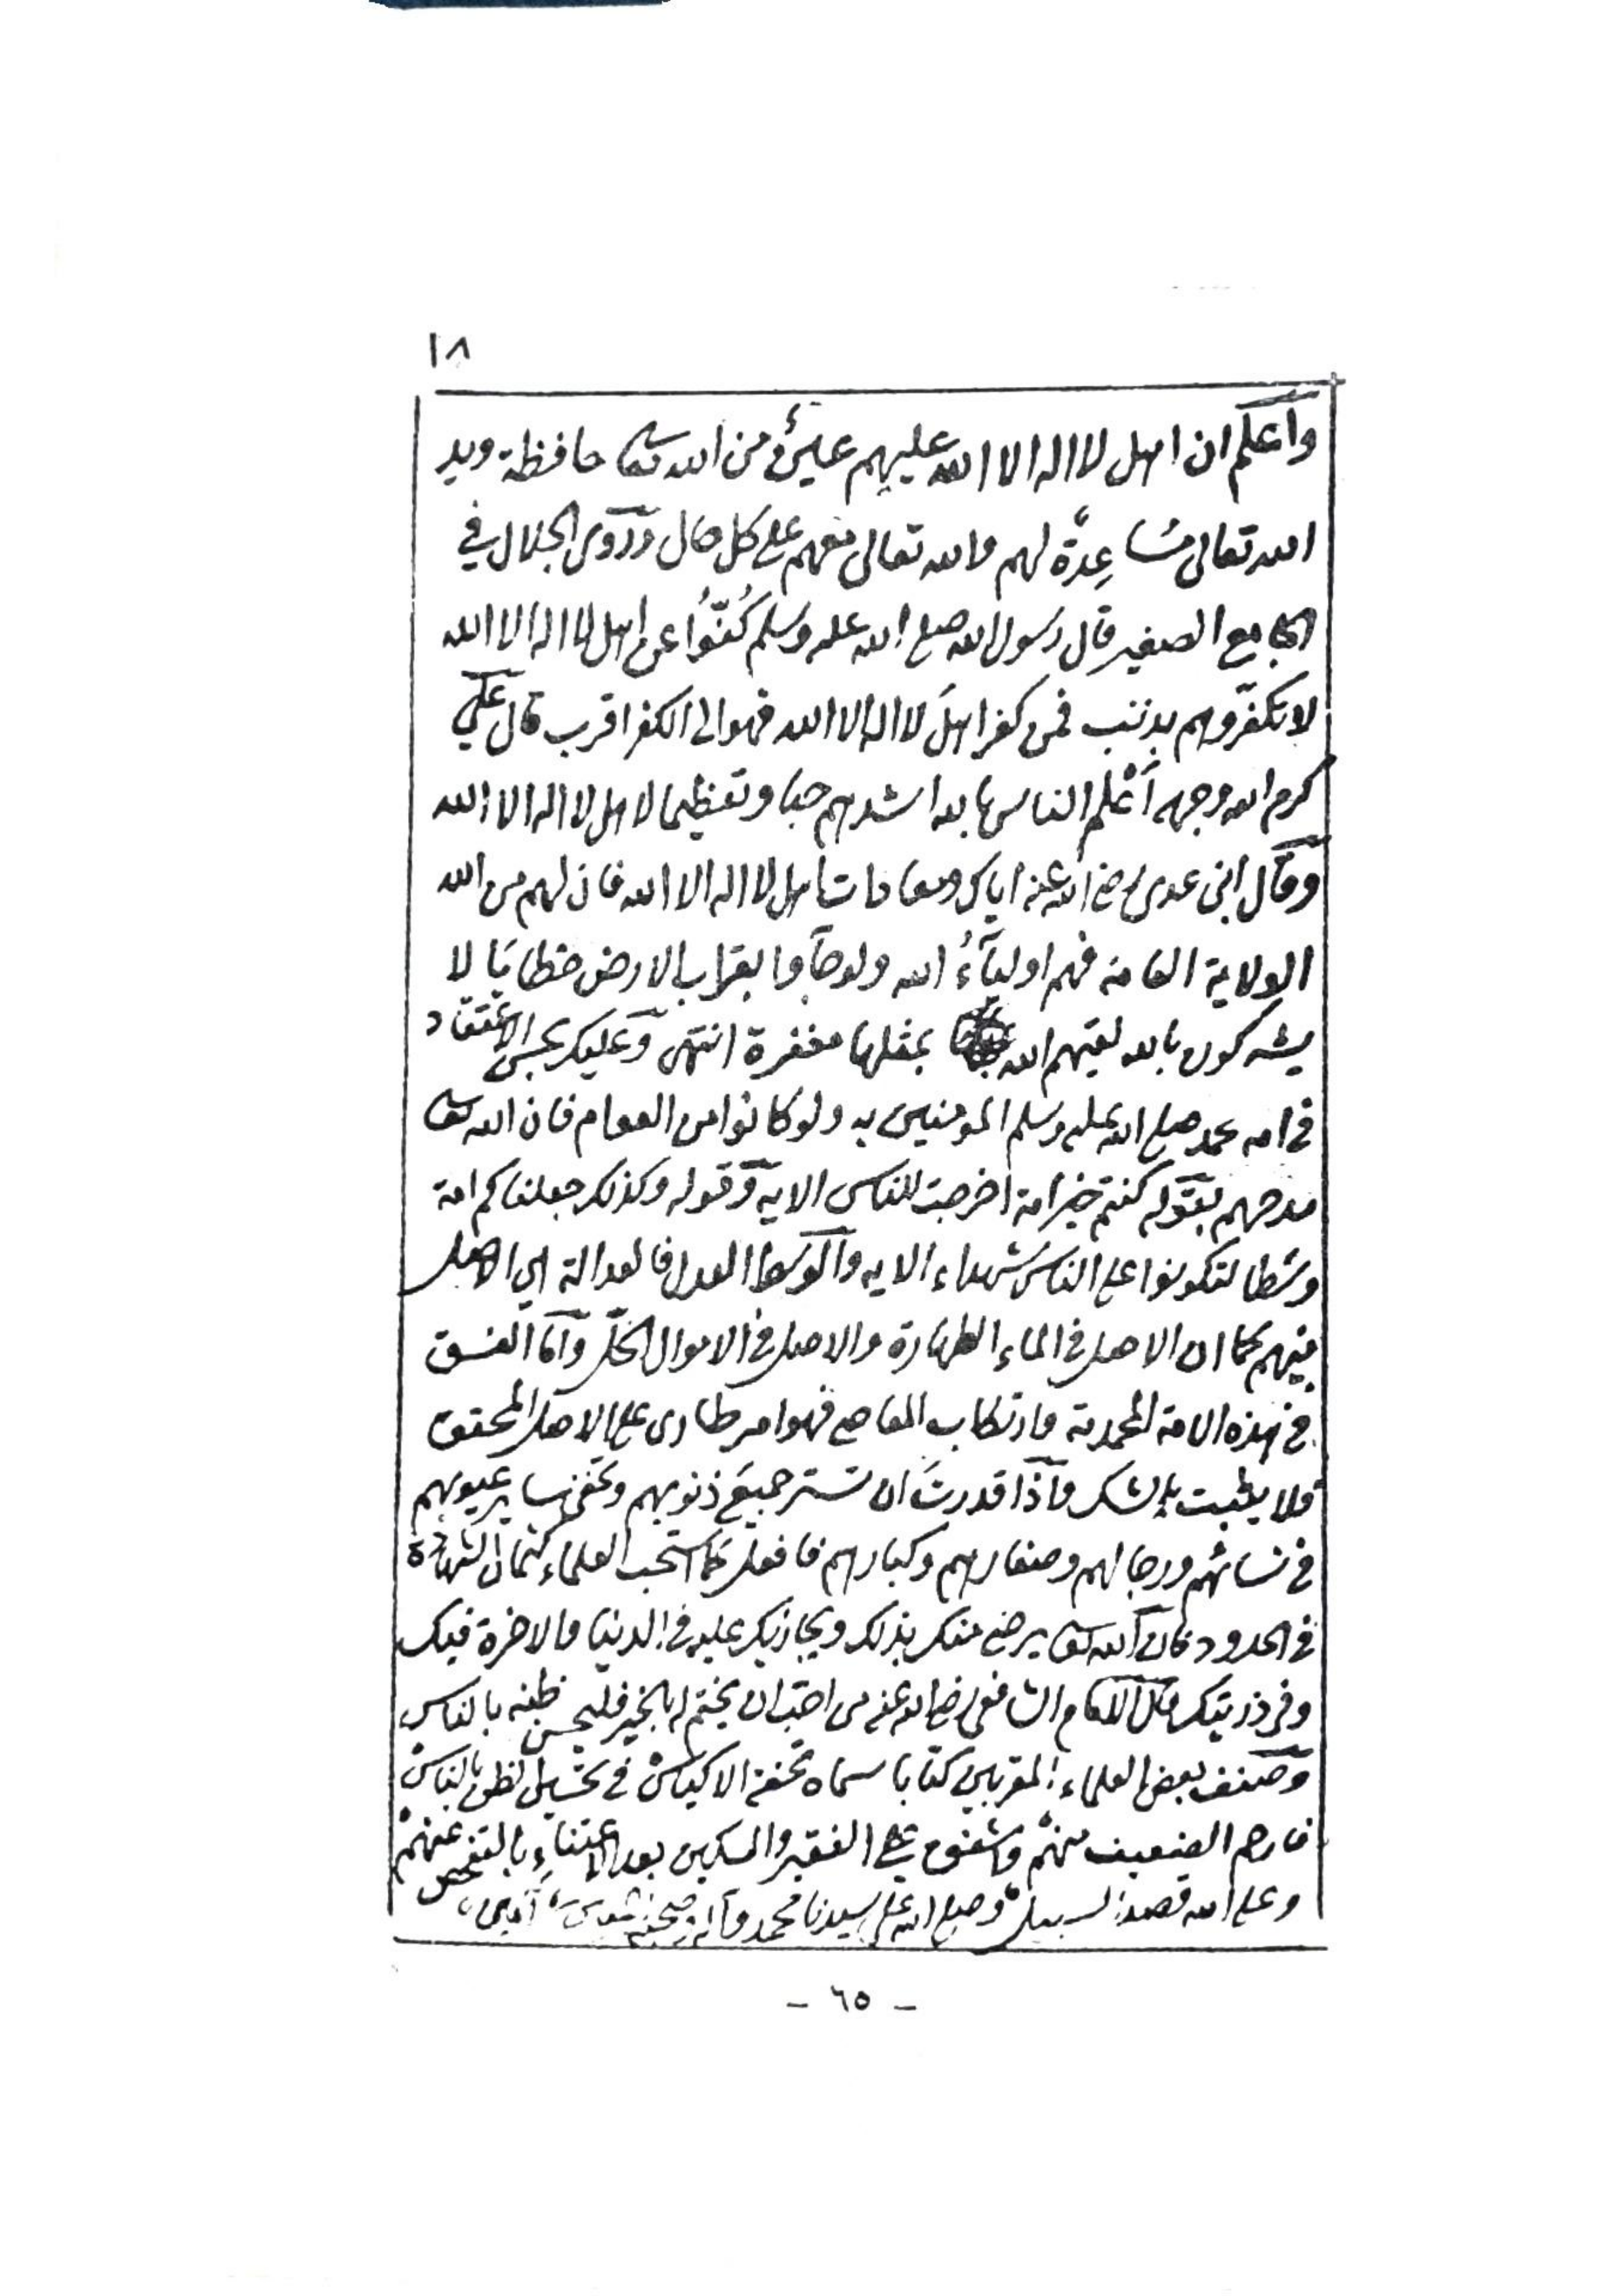 ١٨
وآعلم ان اهل لا اله الا الله عليهم عينٌ من الله تعالى حافظة ويد
الله تعالى مساعِدة لهم والله تعالى معهم على كل حال وروى الجلال في
الجامع الصغير قال رسول الله صلى الله عليه وسلم كُفّوُا عن اهل لا اله الا الله
لا تكفّروهم بذنب فمن كفر اهلَ لا اله الا الله فهو الى الكفر اقرب قال علي
كرم الله وجهه أعْلم الناس بالله اشدهم حبا وتعظيما لاهل لا اله الا الله
وقال ابن عدى رضي الله عنه اياك ومعادات اهل لا اله الا الله فان لهم من الله
الولاية العامة فهم اوليآءُ الله ولو جآوا بقراب الارض خطايا لا
يشركون بالله لقيهم الله بمثلها مغفرة انتهى وعليك بحسن الاعتقاد
في امه محمد صلى الله عليه وسلم المومنين به ولو كانوا من العوام فان الله تعالى
مدحهم بقوله كنتم خير امة اخرجت للناس الايه وقوله وكذلك جعلناكم امة
وسَطا لتكونوا على الناس شهداء الايه والوسَط العدل فالعدالة هي الاصل
فيهم كما ان الاصل في الماء الطهارة والاصل في الاموال الحل وآما الفسق
في هذه الامة المحمدية وارتكاب المعاصي فهو امر طارى على الاصل المحقق
فلا يثبت بالشك وآذا قدرتَ ان تستر جميعَ ذنوبهم وتخفى ساير عيوبهم
في نسائهم ورجالهم وصغارهم وكبارهم فافعل كما استحب العلماء كتمان الشهادة
في الحدود فان الله تعالى يرضى منك بذلك ويجازيك عليه في الدنيا والاخرة فيك
وفي ذريتك قال الامام الشافعي رضي الله عنه من احبّ ان يختم له بالخير فليحسن ظنه بالناس
وصنف بعض العلماء المقربين كتابا سماه تحفة الاكياس في تحسين الظن بالناس
فارحم الضعيف منهم واشفق على الفقير والمسكين بعد الاعتناءِ بالتفحص عنهم
وعلى الله قصد السبيل وصلى الله على سيدنا محمد وآله وصحبه آمين
- ٦٥ -